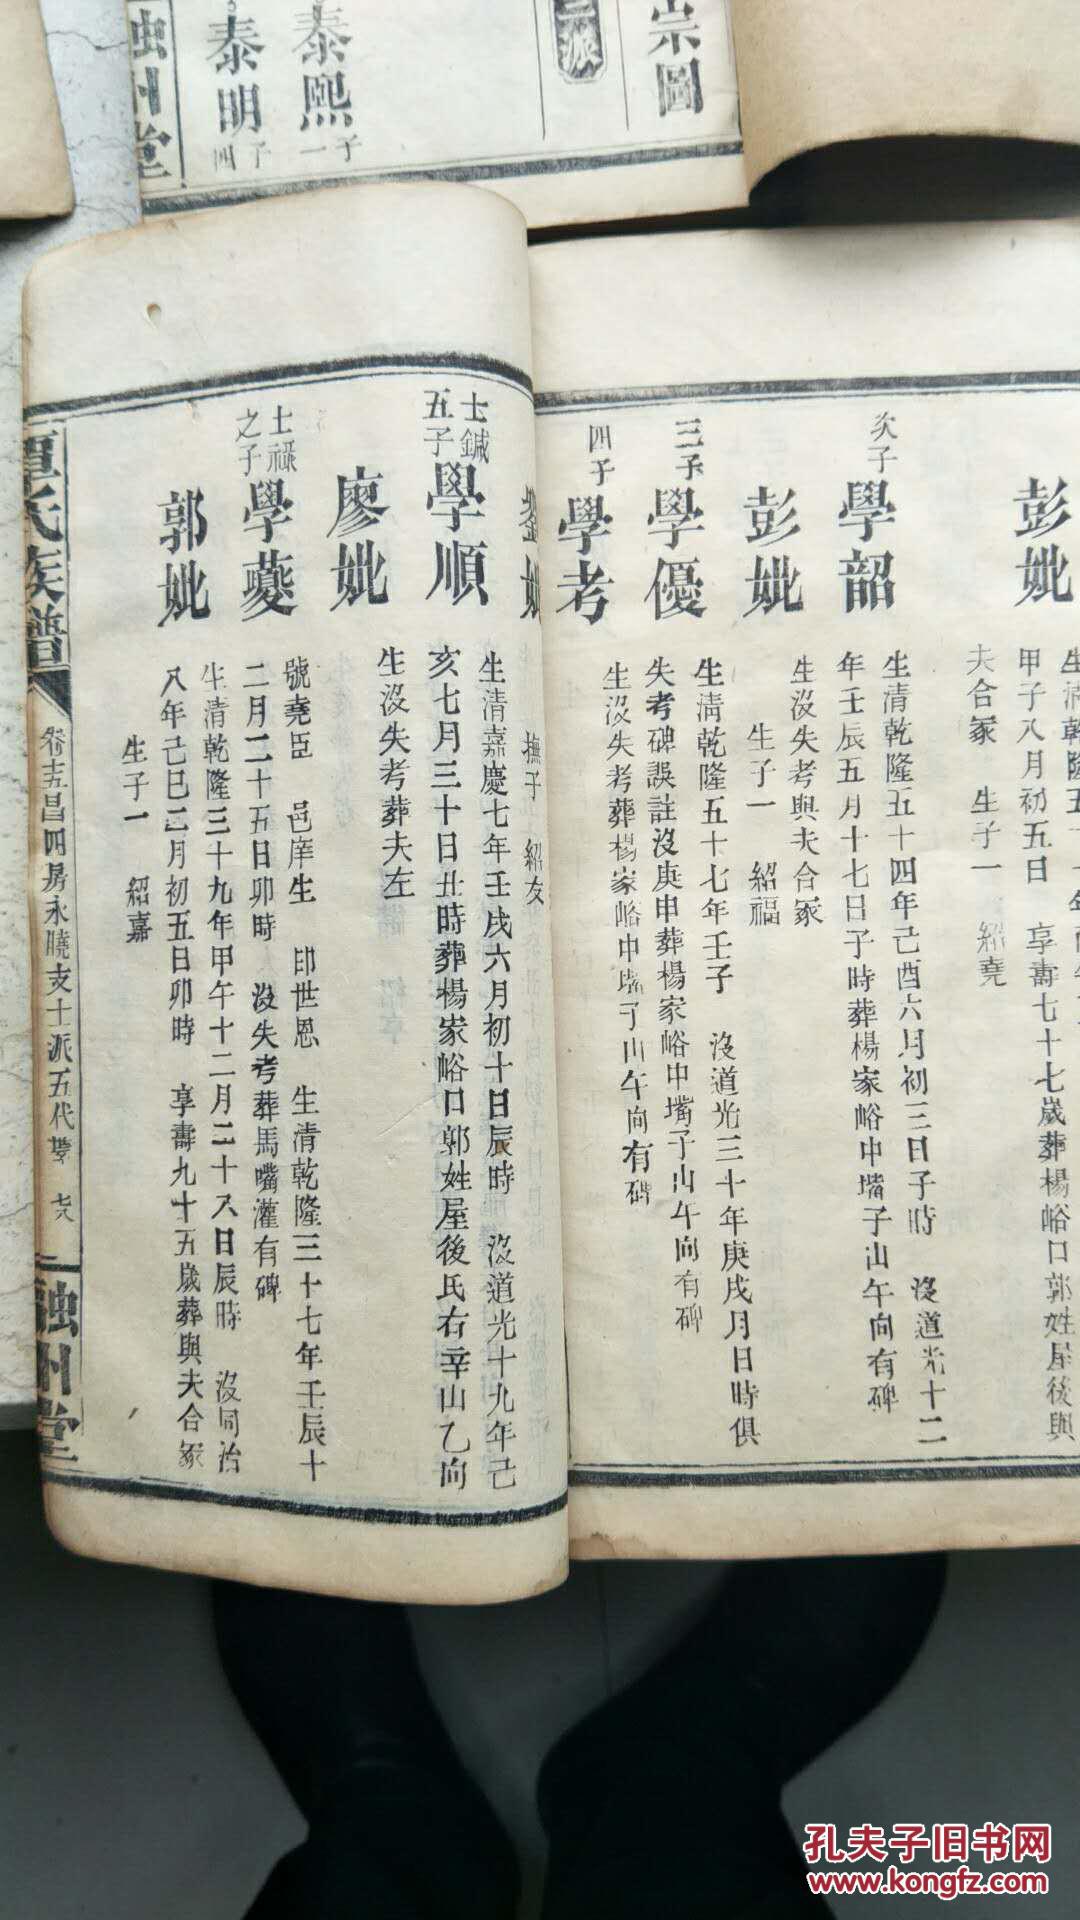 宗圖
泰熙
一子
泰明
四子
彭妣
甲子八月初五日 享壽七十七歲葬楊峪口郭姓屋後與
夫合冢 生子一 紹堯
次子
學韶
生清乾隆五十四年己酉六月初三日子時 沒道光十二
年壬辰五月十七日子時葬楊家峪中嘴子山午向有碑
彭妣
生沒失考與夫合冢
生子一 紹福
三子
學優
生清乾隆五十七年壬子 沒道光三十年庚戌月日時俱
失考碑誤註沒庚申葬楊家峪中嘴子山午向有碑
四子
學考
生沒失考葬楊家峪中嘴子山午向有碑
撫子 紹友
士鍼
五子
學順
生清嘉慶七年壬戌六月初十日辰時 沒道光十九年己
亥七月三十日丑時葬楊家峪口郭姓屋後氏右辛山乙向
廖妣
生沒失考葬夫左
士祿
之子
學夔
號堯臣 邑庠生 印世恩 生清乾隆三十七年壬辰十
二月二十五日卯時 沒失考葬馬嘴灌有碑
郭妣
生清乾隆三十九年甲午十二月二十八日辰時 沒同治
八年己巳二月初五日卯時 享壽九十五歲葬與夫合冢
生子一 紹嘉
氏族譜
卷十五昌四房永曉支士派五代 七八
孔夫子旧书网
www.kongfz.com